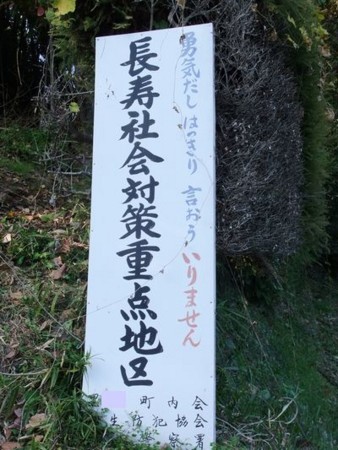 勇気だし はっきり 言おう いりません
長寿社会対策重点地区
町内会
生防犯協会
警察署